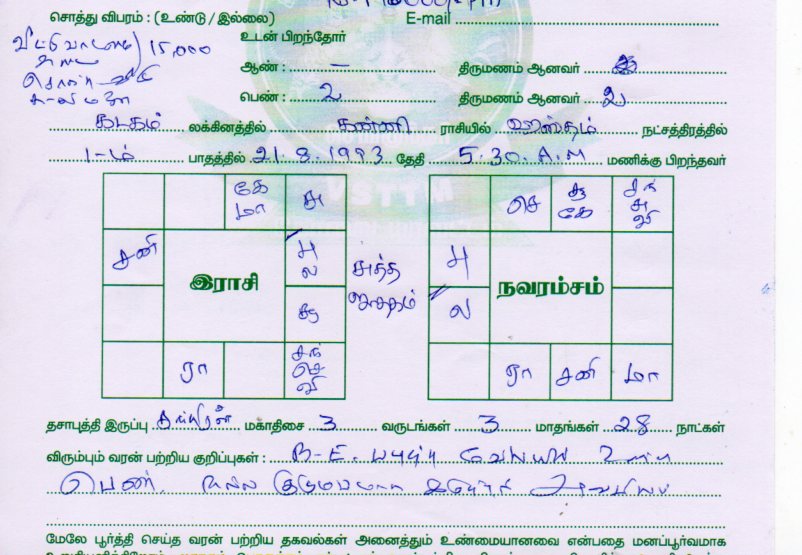 சொத்து விபரம் : (உண்டு / இல்லை) E-mail
உடன் பிறந்தோர்
15,000
ஆண் : – திருமணம் ஆனவர்
பெண் : 2 திருமணம் ஆனவர் 2
கடகம் லக்கினத்தில் கன்னி ராசியில் ஹஸ்தம் நட்சத்திரத்தில்
1-ம் பாதத்தில் 21.8.1993 தேதி 5.30 A.M மணிக்கு பிறந்தவர்
கே மா சு செ சூ கே சந் சு வி
சனி பு ல சுத்த பு
இராசி ஜாதகம் நவரம்சம்
சூ ல
ரா சந் செ வி ரா சனி மா
தசாபுத்தி இருப்பு சந்திரன் மகாதிசை 3 வருடங்கள் 3 மாதங்கள் 28 நாட்கள்
விரும்பும் வரன் பற்றிய குறிப்புகள் : B.E. படித்த வேலையில் உள்ள
பெண். நல்ல குடும்பமாக
மேலே பூர்த்தி செய்த வரன் பற்றிய தகவல்கள் அனைத்தும் உண்மையானவை என்பதை மனப்பூர்வமாக